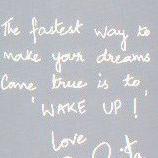 The fastest way to
make your dreams
Come true is to
'WAKE UP!'
Love